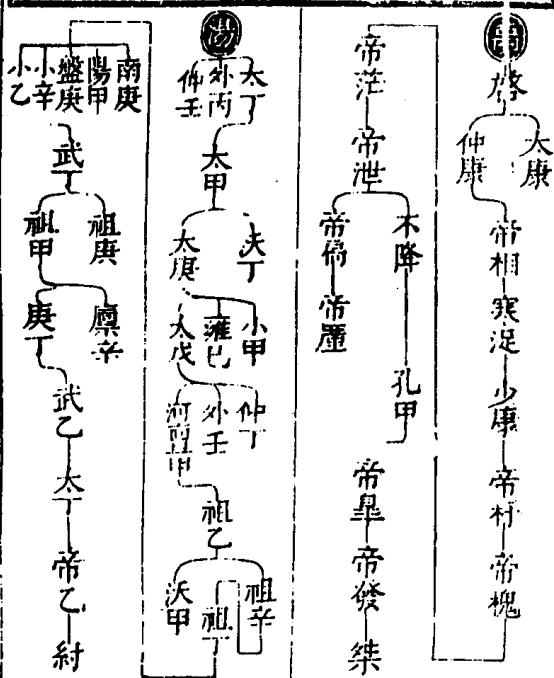 禹
啓
太康
仲康
帝相
寒浞
少康
帝杼
帝槐
帝茫
帝泄
不降
帝扃
帝廑
孔甲
帝皐
帝發
桀
湯
太丁
外丙
仲壬
太甲
沃丁
太庚
小甲
雍已
太戊
仲丁
外壬
河亶甲
祖乙
祖辛
沃甲
祖丁
南庚
陽甲
盤庚
小辛
小乙
武丁
祖庚
祖甲
廪辛
庚丁
武乙
太丁
帝乙
紂